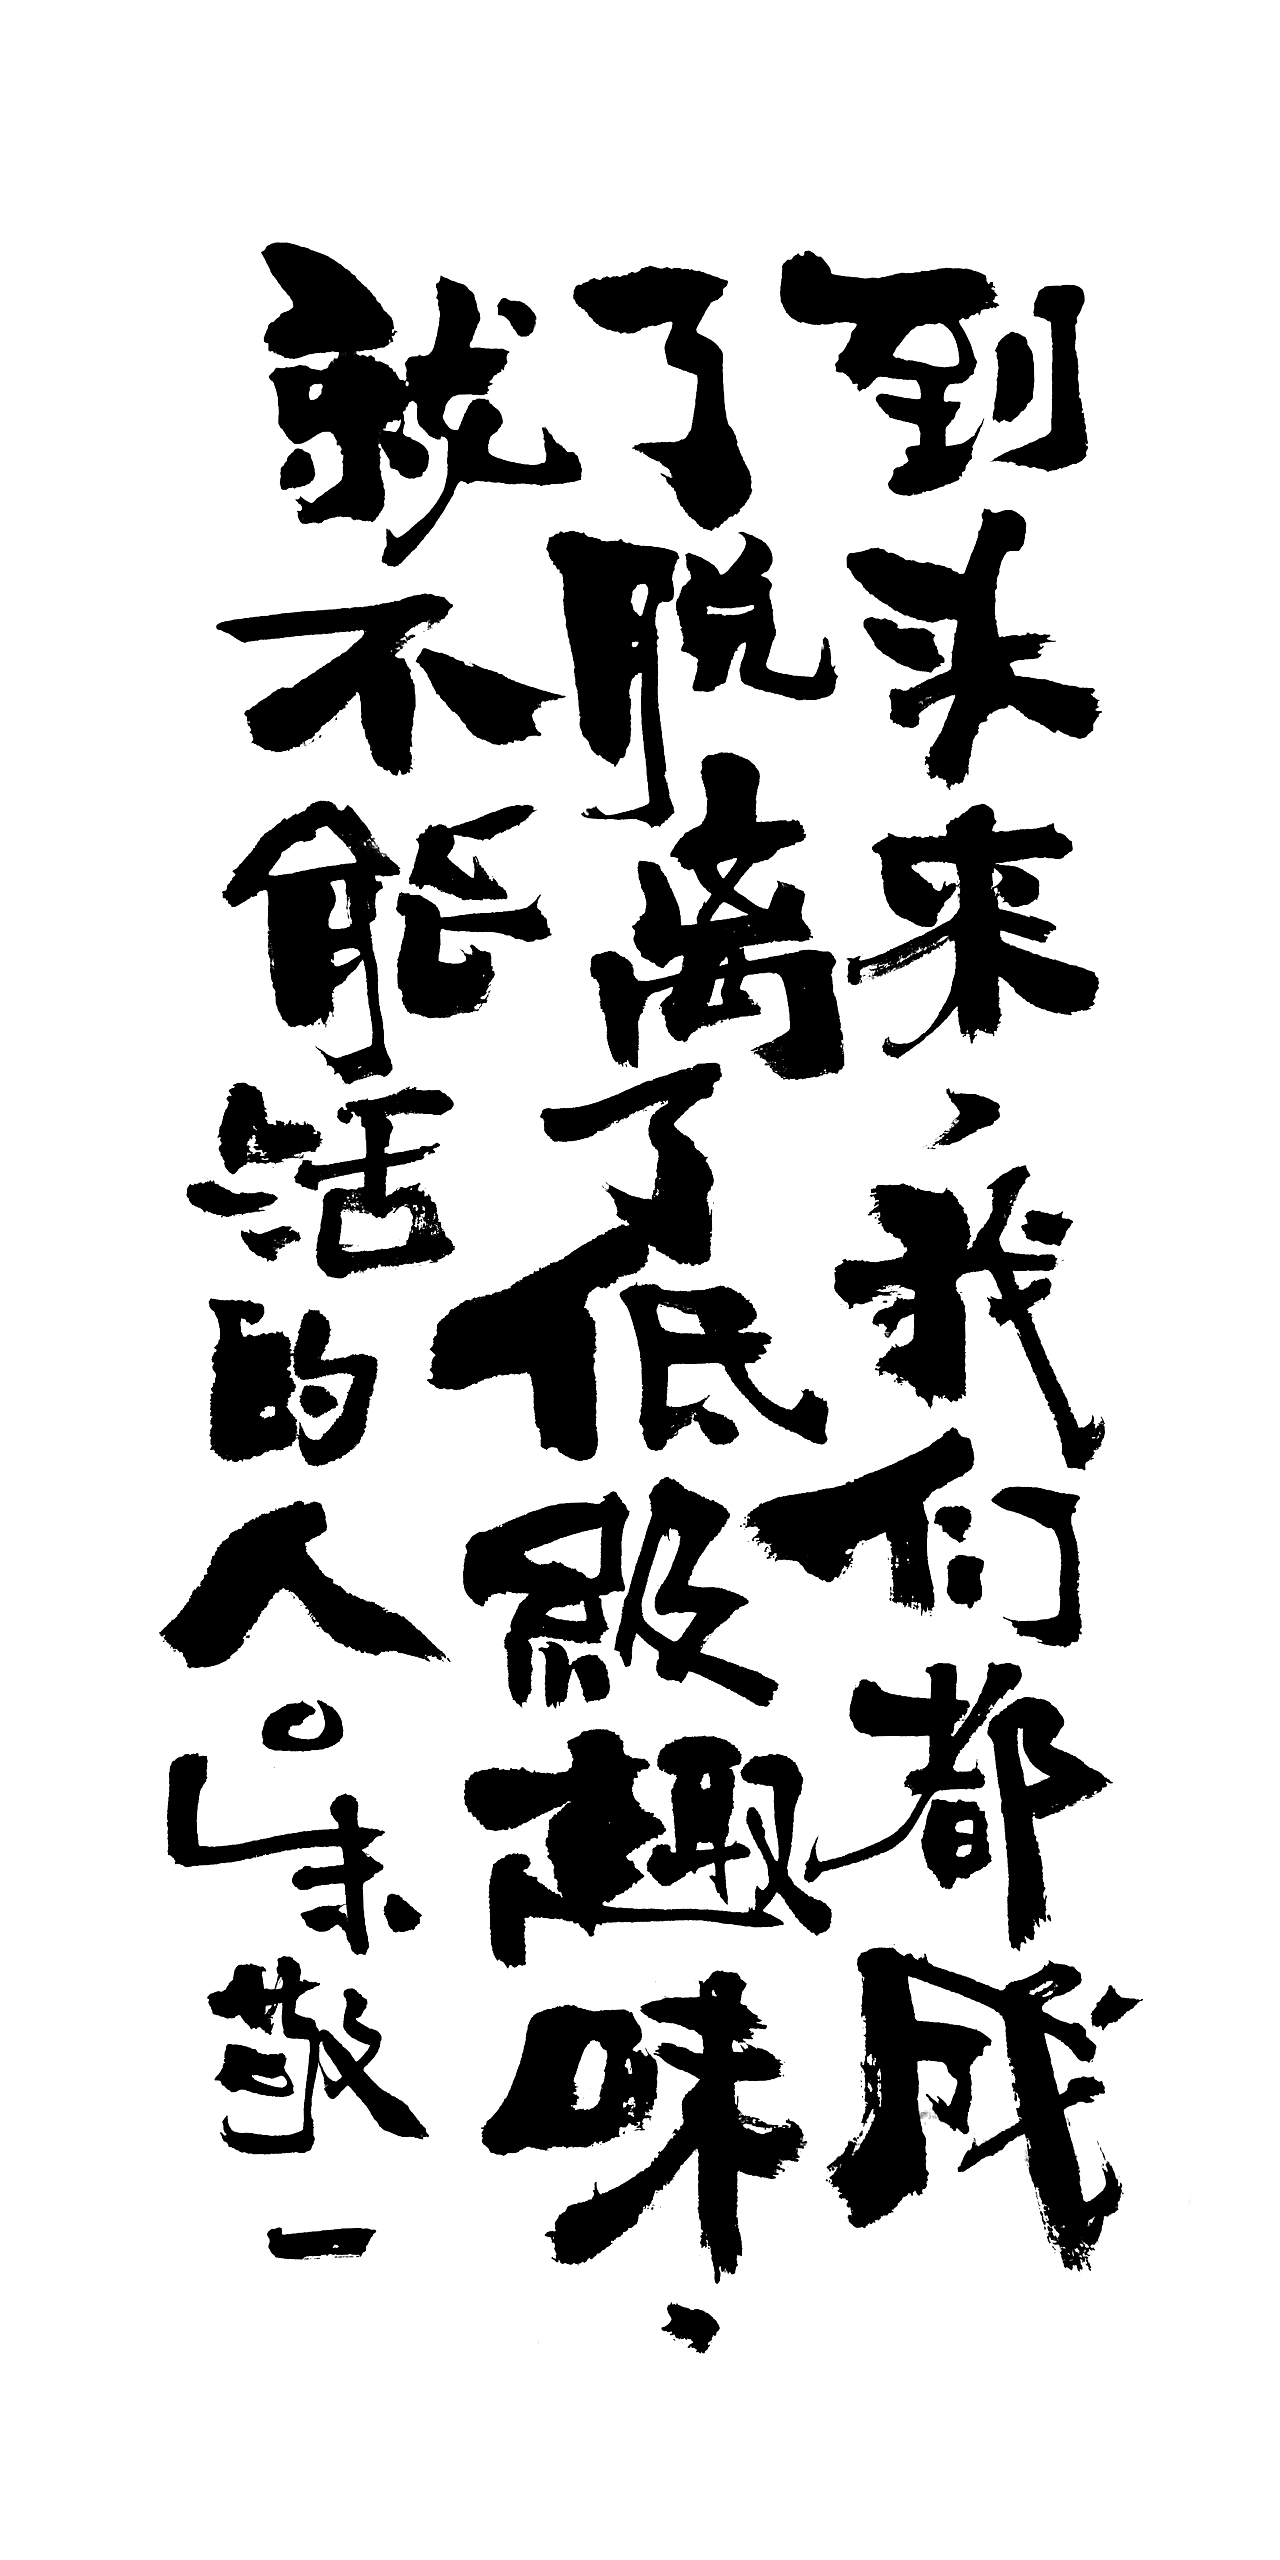 到头来，我们都成
了脱离了低級趣味，
就不能活的人。朱敬一